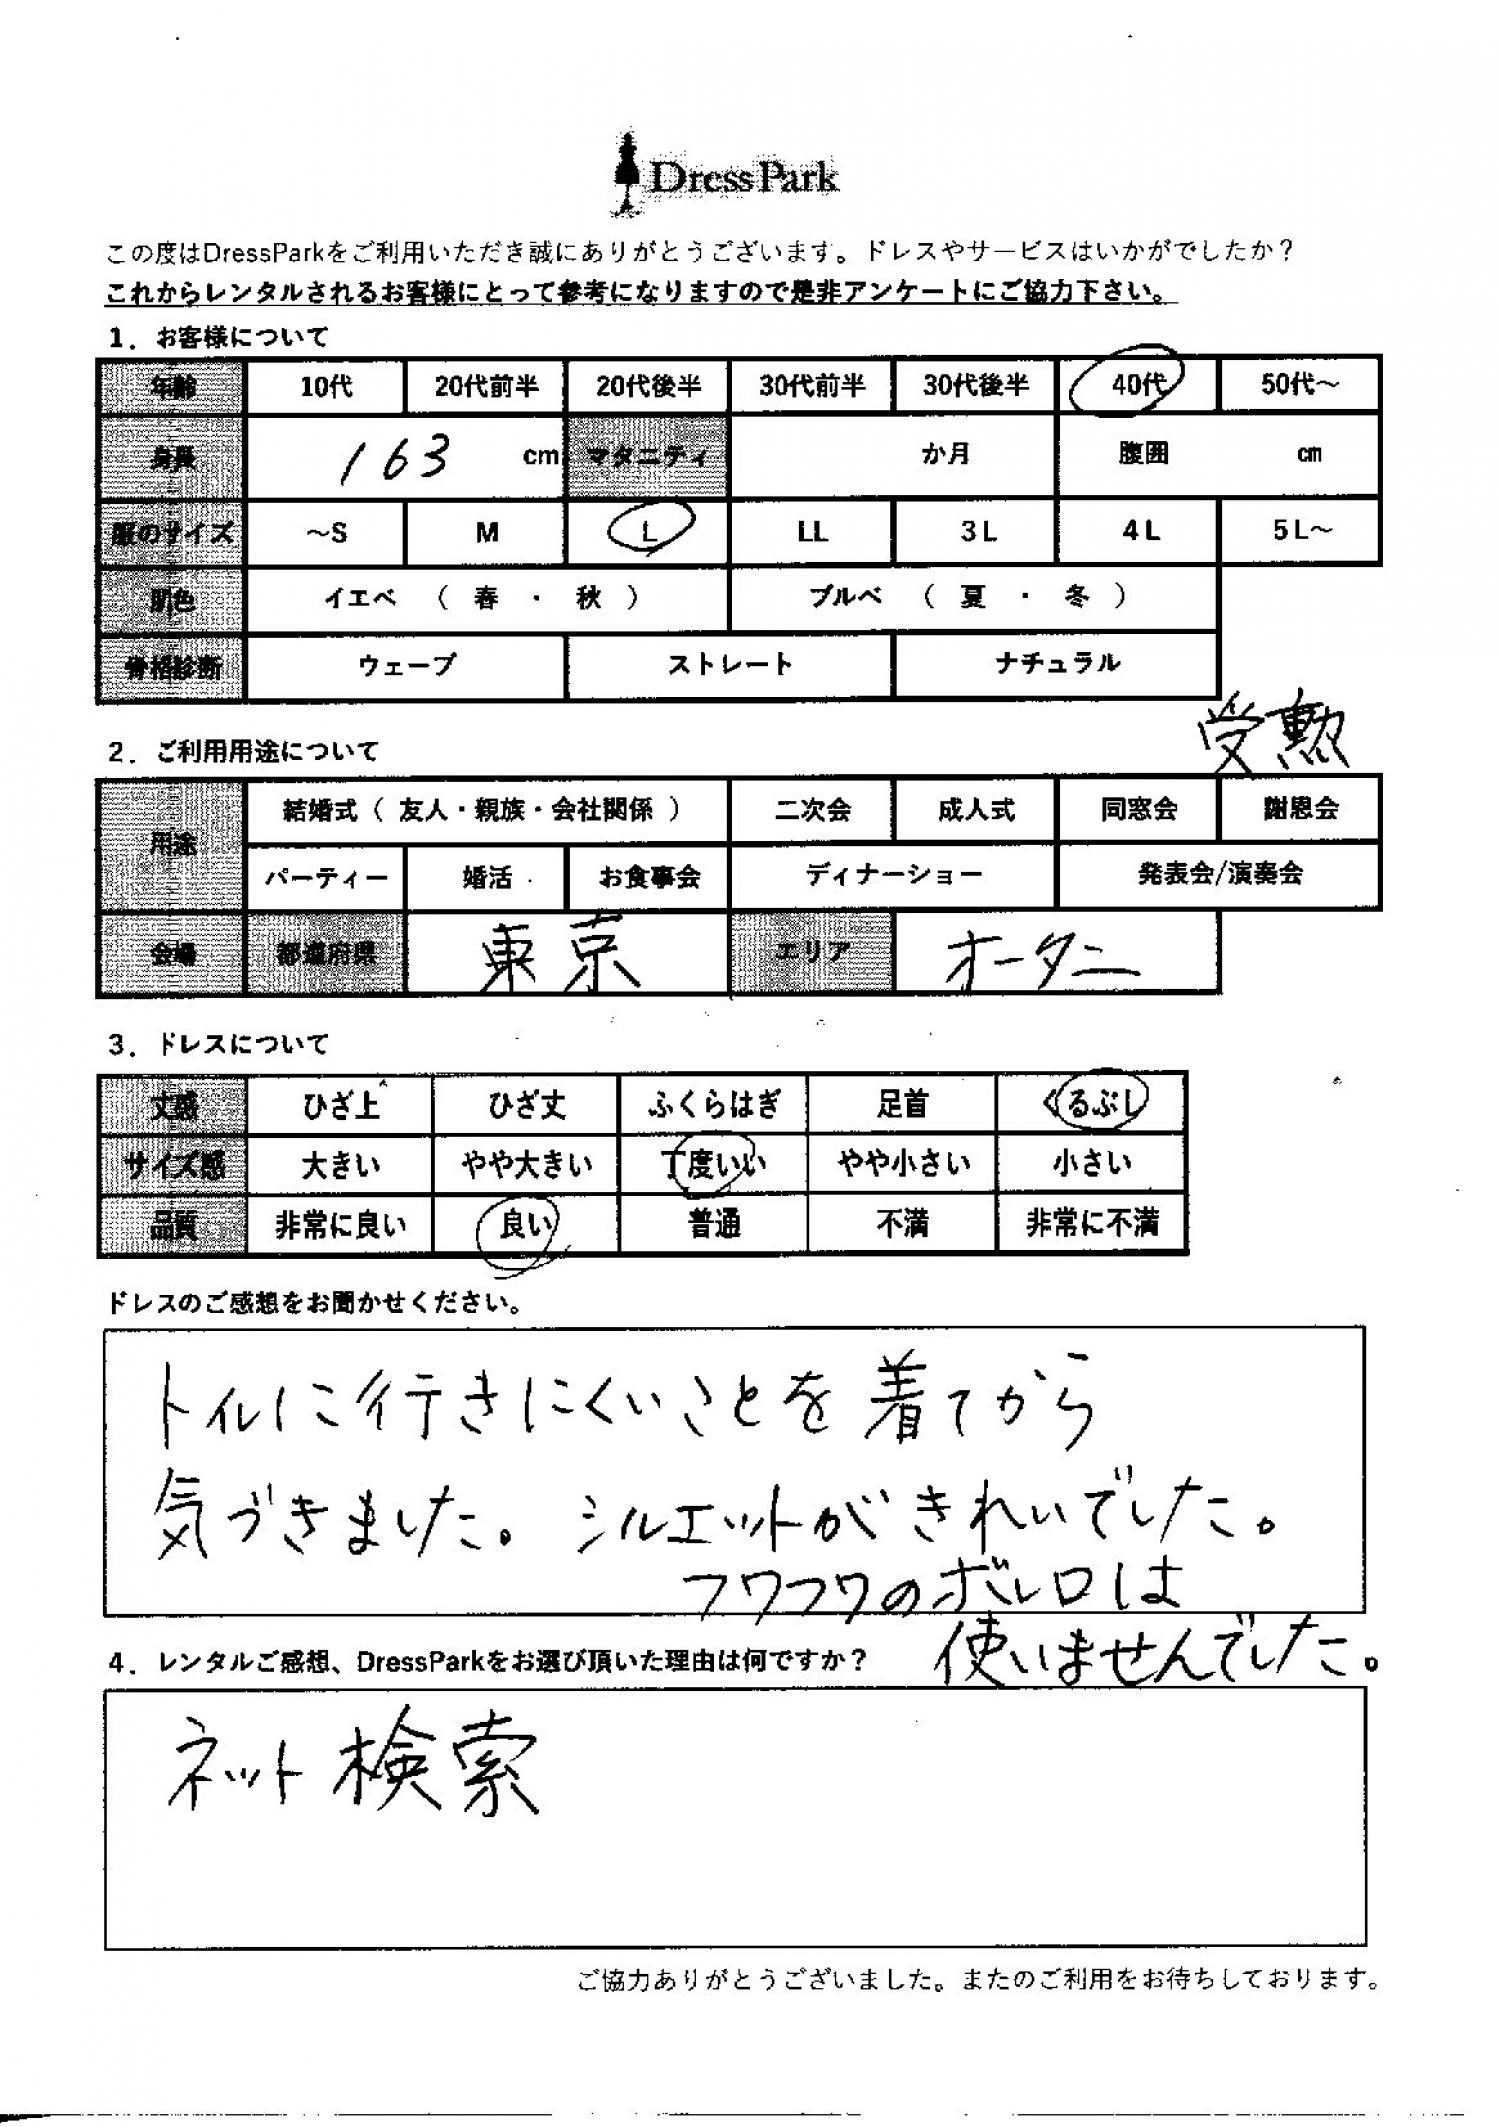 DressPark
この度はDressParkをご利用いただき誠にありがとうございます。ドレスやサービスはいかがでしたか？
これからレンタルされるお客様にとって参考になりますので是非アンケートにご協力下さい。
1．お客様について
年齢 10代 20代前半 20代後半 30代前半 30代後半 40代 50代～
身長 163 cm マタニティ か月 腹囲 cm
服のサイズ ～S M L LL 3L 4L 5L～
肌色 イエベ （ 春 ・ 秋 ） ブルベ （ 夏 ・ 冬 ）
骨格診断 ウェーブ ストレート ナチュラル
受勲
2．ご利用用途について
用途 結婚式（ 友人・親族・会社関係 ） 二次会 成人式 同窓会 謝恩会
パーティー 婚活 お食事会 ディナーショー 発表会/演奏会
会場 都道府県 東京 エリア オータニ
3．ドレスについて
丈感 ひざ上 ひざ丈 ふくらはぎ 足首 くるぶし
サイズ感 大きい やや大きい 丁度いい やや小さい 小さい
品質 非常に良い 良い 普通 不満 非常に不満
ドレスのご感想をお聞かせください。
トイレに行きにくいことを着てから
気づきました。シルエットがきれいでした。
フワフワのボレロは
使いませんでした。
4．レンタルご感想、DressParkをお選び頂いた理由は何ですか？
ネット検索
ご協力ありがとうございました。またのご利用をお待ちしております。